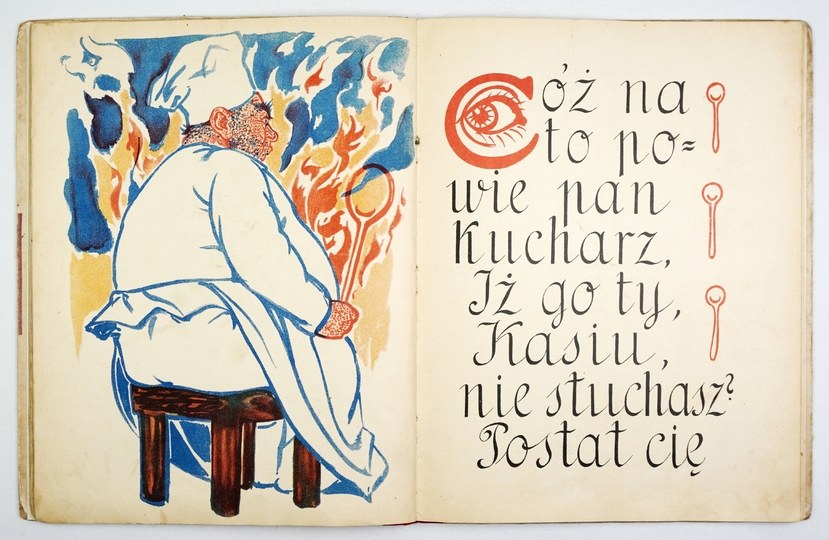 Cóż na
to po=
wie pan
Kucharz,
Iż go ty,
Kasiu,
nie słuchasz?
Posłał cię